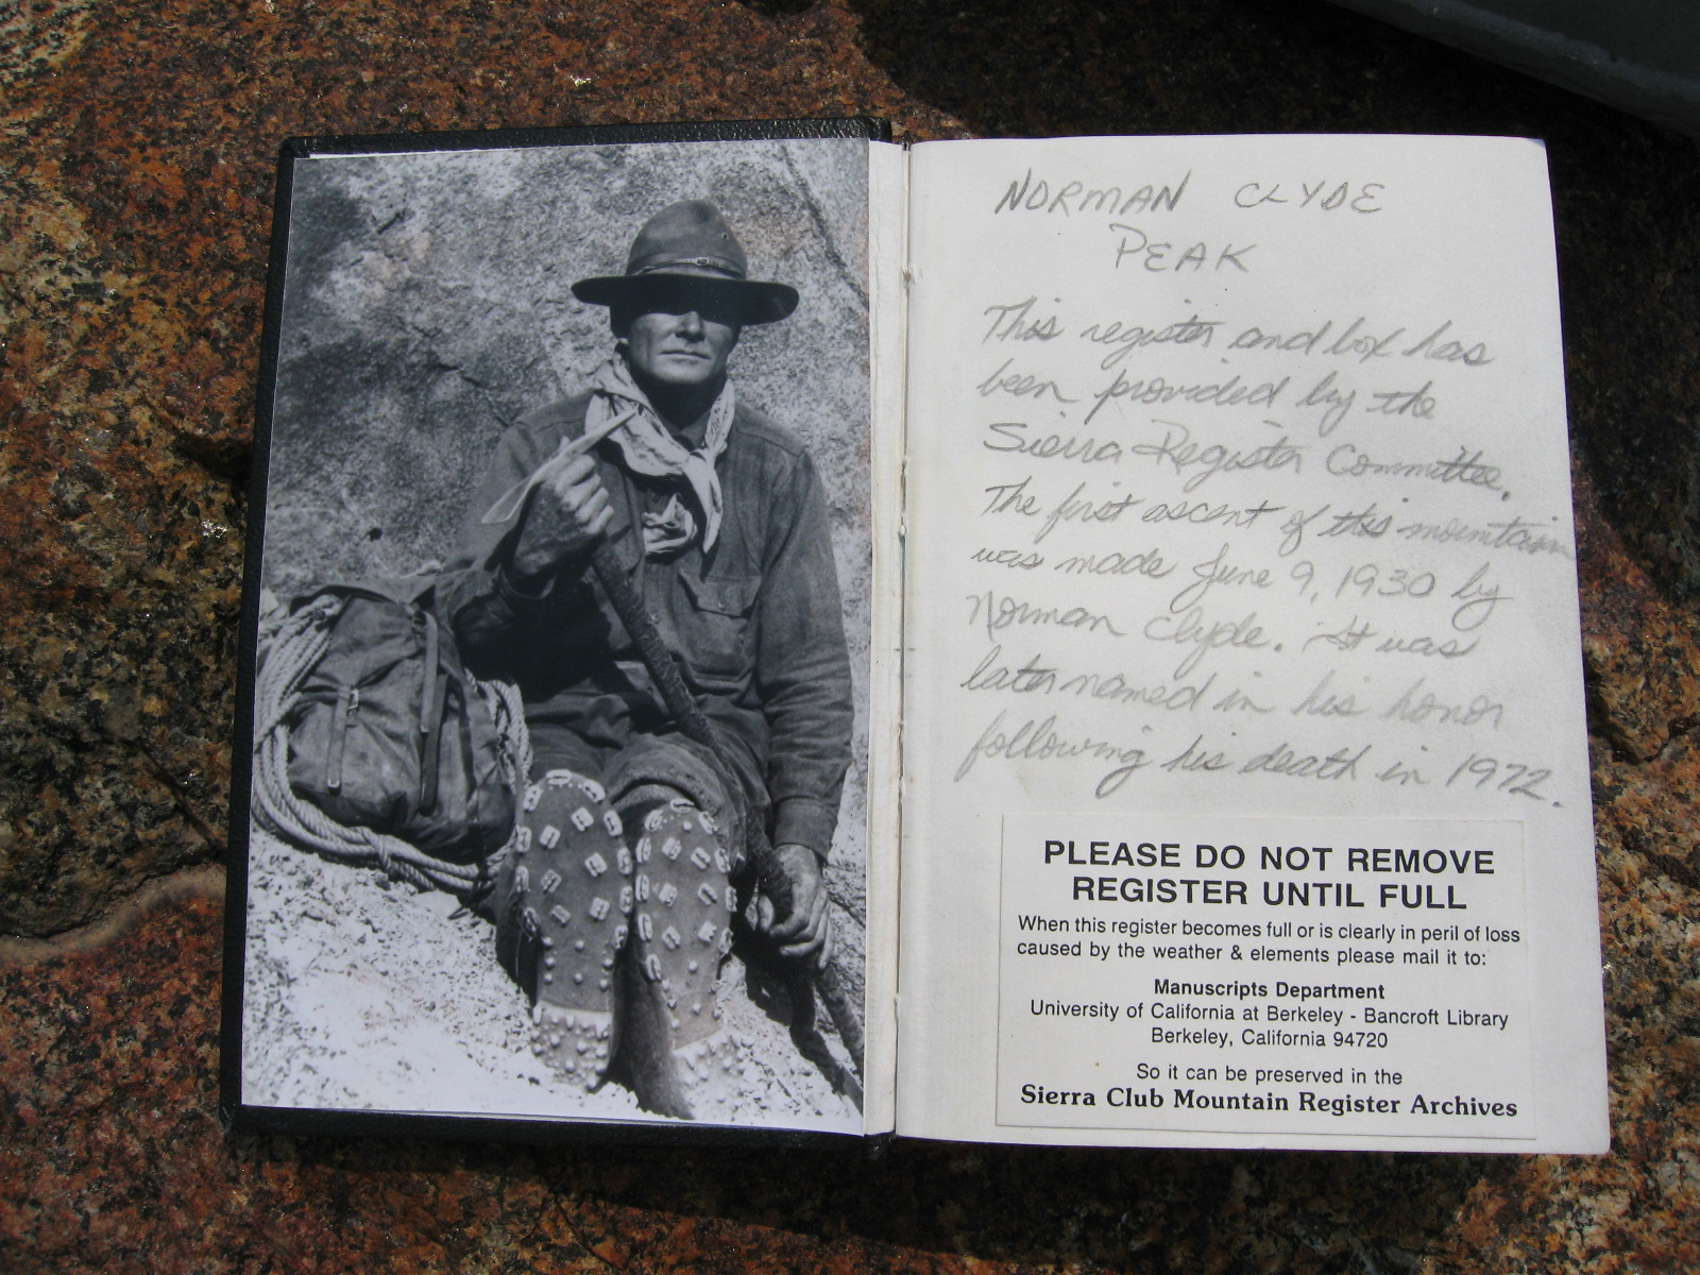 NORMAN CLYDE
PEAK
This register and box has
been provided by the
Sierra Register Committee.
The first ascent of this mountain
was made June 9, 1930 by
Norman Clyde. It was
later named in his honor
following his death in 1972.
PLEASE DO NOT REMOVE
REGISTER UNTIL FULL
When this register becomes full or is clearly in peril of loss
caused by the weather & elements please mail it to:
Manuscripts Department
University of California at Berkeley - Bancroft Library
Berkeley, California 94720
So it can be preserved in the
Sierra Club Mountain Register Archives